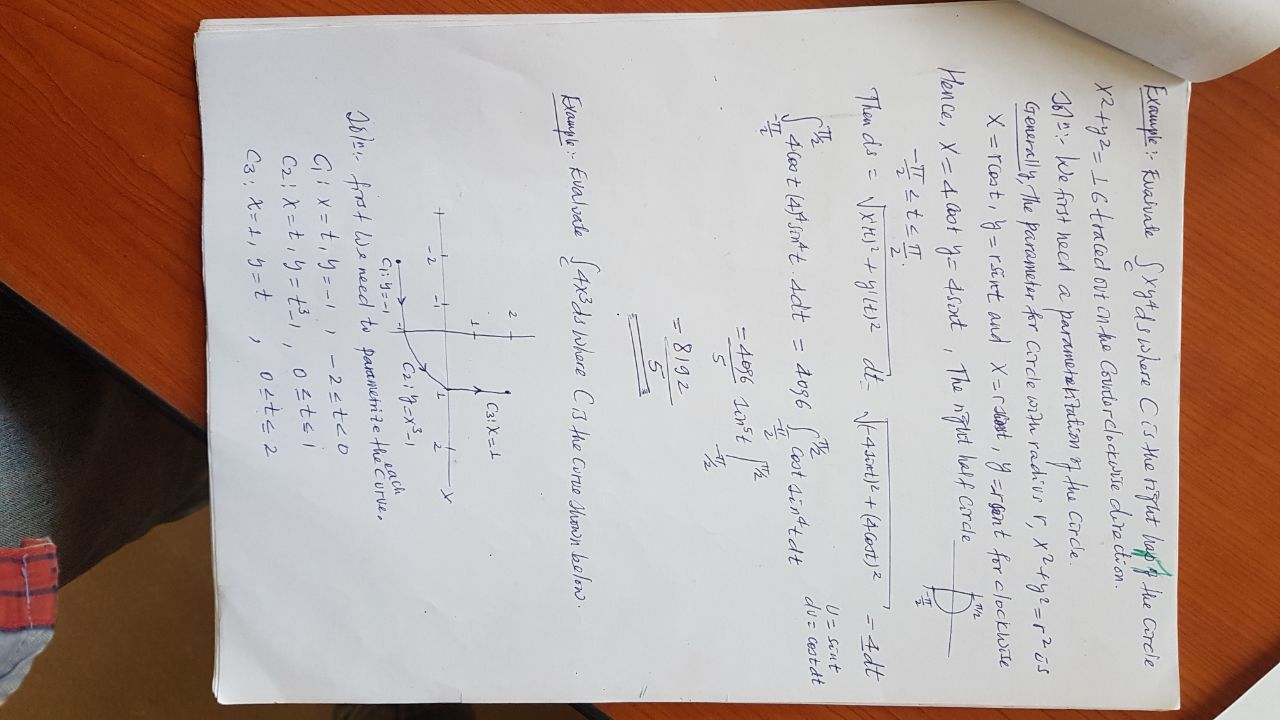 Example:- Evaluate ∫_C xy⁴ds where C is the right half of the circle
x²+y² = 16 traced out in the Counterclockwise direction.
Solⁿ:- We first need a parametrization of the circle.
Generally, the parameter for circle with radius r, x²+y² = r² is
x = rcost, y = rsint and x = r cost, y = -rsint for clockwise
Hence, x = 4cost y = 4sint, The right half circle
-π/2 ≤ t ≤ π/2.
π/2
-π/2
Then ds = √(x'(t)² + y'(t)²) dt = √((-4sint)² + (4cost)²) = 4dt
∫_{-π/2}^{π/2} 4cost (4)⁴sin⁴t . 4dt = 4096 ∫_{-π/2}^{π/2} cost sin⁴t dt
u = sint
du = cost dt
= 4096/5 sin⁵t |_{-π/2}^{π/2}
= 8192/5
Example:- Evaluate ∫_C 4x³ds where C is the curve shown below.
2
C₃: x=1
1
-2 -1 1 2 x
-1
C₁: y=-1
C₂: y=x³-1
Solⁿ:- first we need to parametrize each the curve.
C₁: x = t, y = -1, -2 ≤ t ≤ 0
C₂: x = t, y = t³-1, 0 ≤ t ≤ 1
C₃: x = 1, y = t, 0 ≤ t ≤ 2